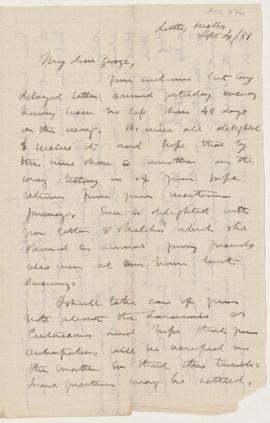 Acc. 326
Little Metis
Sept 4/88
My dear George,
Your welcome but long
delayed letter arrived yesterday evening
having been no less than 40 days
on the way. We were all delighted
to receive it and hope that by
this time there is another on the
way telling us of your safe
return from your
journey. Eva is delighted with
your letter & sketches which she
showed to several young friends
who were at our house last
evening.
I shall take care of your
note about the
Cretaceous and hope that your
anticipations will be verified in
this matter so that this trouble-
some question may be settled.